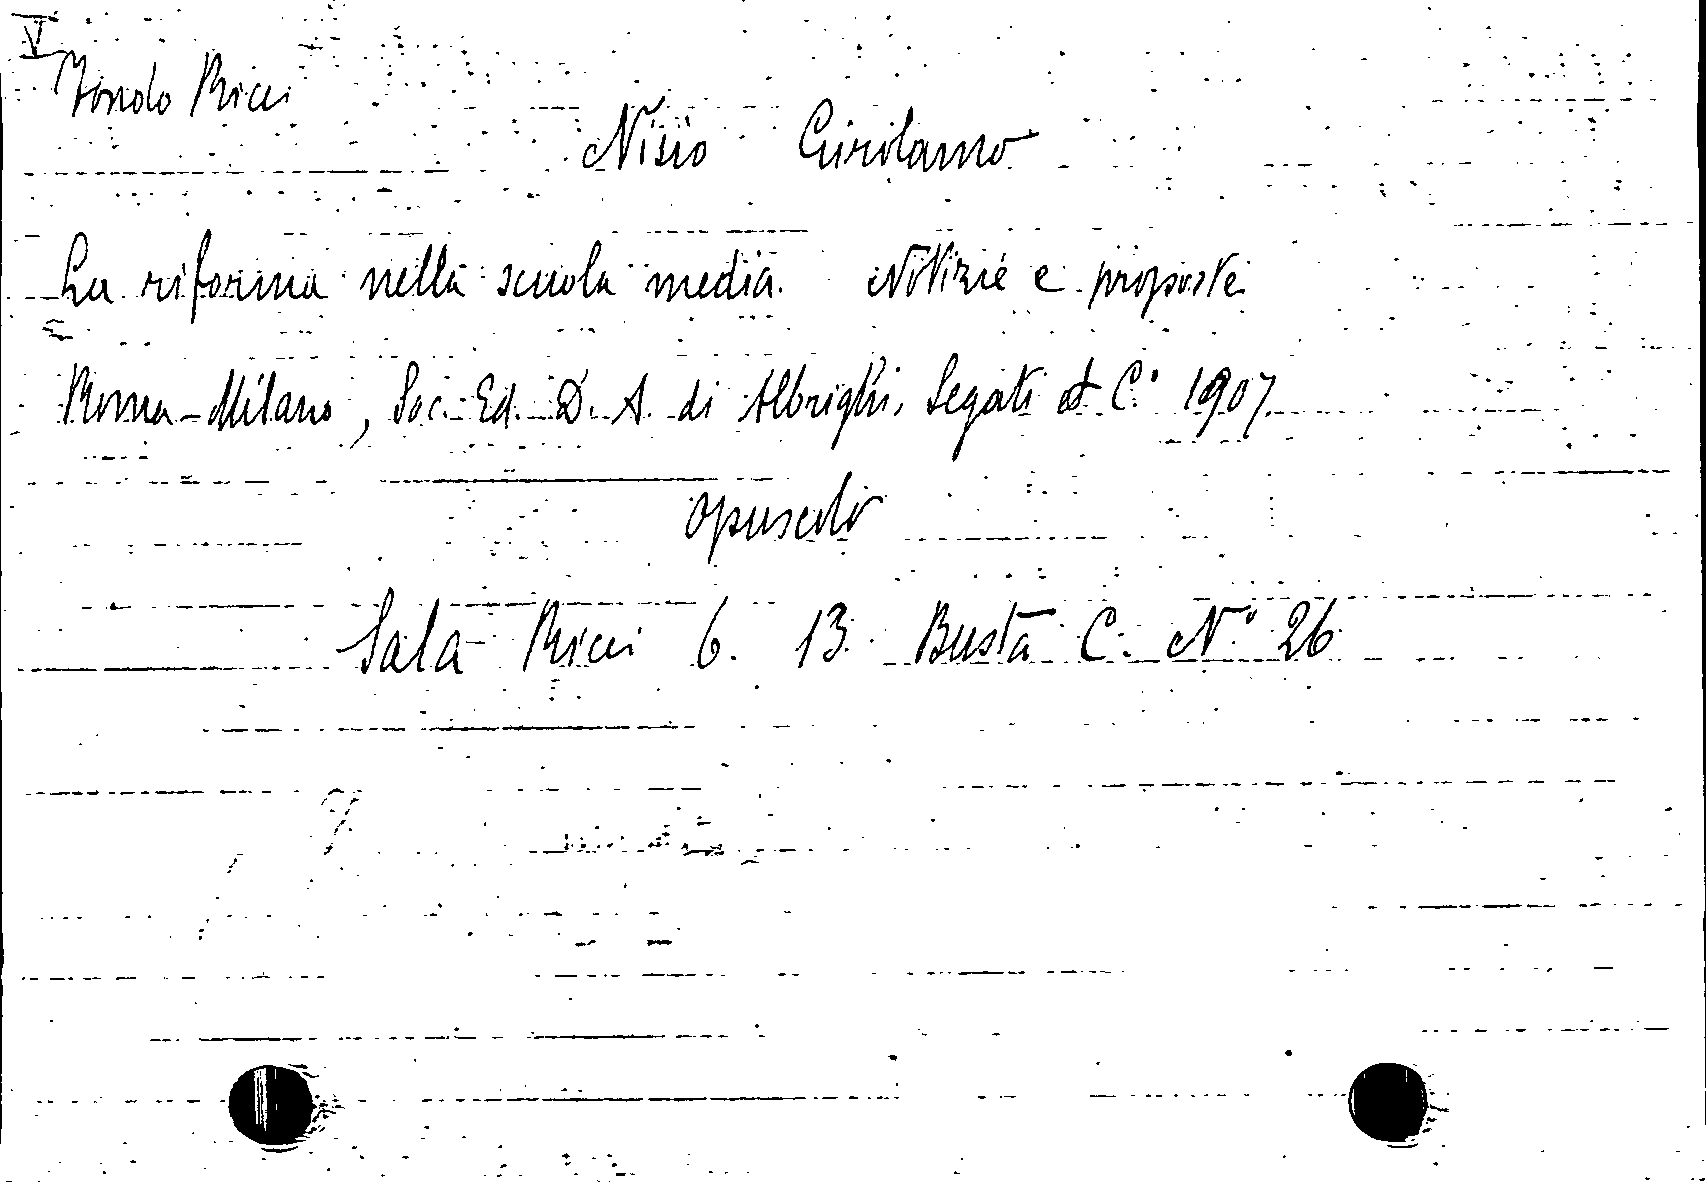 V
Fondo Ricci
Nisio Girolamo
La riforma nella scuola media. Notizie e proposte
Roma-Milano, Soc. Ed. D. A. di Albrighi, Segati & C.° 1907
opuscolo
Sala Ricci 6. 13. Busta C. N.° 26